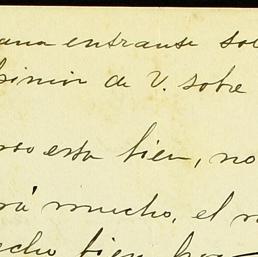 ana entrante sol
pinion de V. sobre
so esta bien, no
rá mucho, el
cho bien